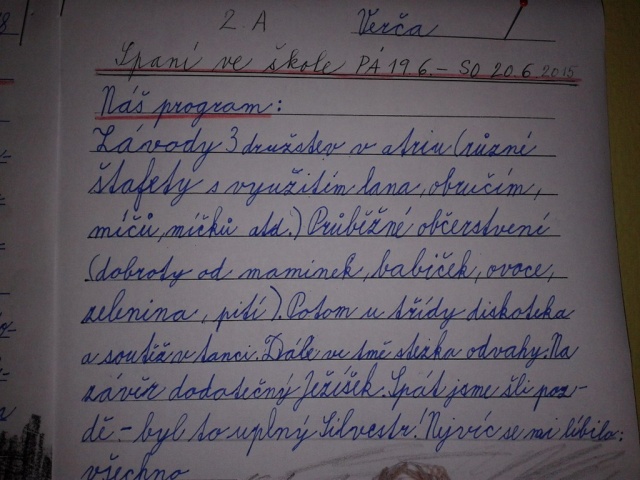 2. A Verča
Spaní ve škole PÁ 19.6. – SO 20.6.2015
Náš program:
Závody 3 družstev v atriu (různé
štafety s využitím lana, obručím,
míčů, míčků atd.) Průběžné občerstvení
(dobroty od maminek, babiček, ovoce,
zelenina, pití). Potom u třídy diskoteka
a soutěž v tanci. Dále ve tmě stezka odvahy. Na
závěr dodatečný Ježíšek. Spát jsme šli poz-
dě. – byl to uplný Silvestr! Nejvíc se mi líbilo:
všechno